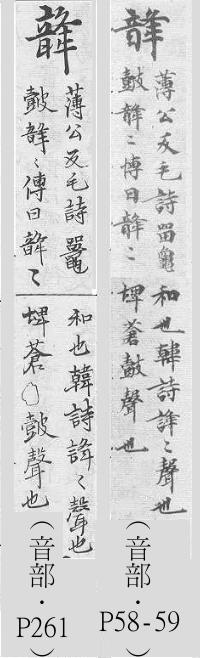 韸
薄公反毛詩鼉
鼓韸〻傳曰韸〻
和也韓詩〻聲也
埤蒼鼓聲也
（音部・P58-59）
韸
薄公反毛詩鼉
鼓韸〻傳曰韸〻
和也韓詩〻聲也
埤蒼○鼓聲也
（音部・P261）